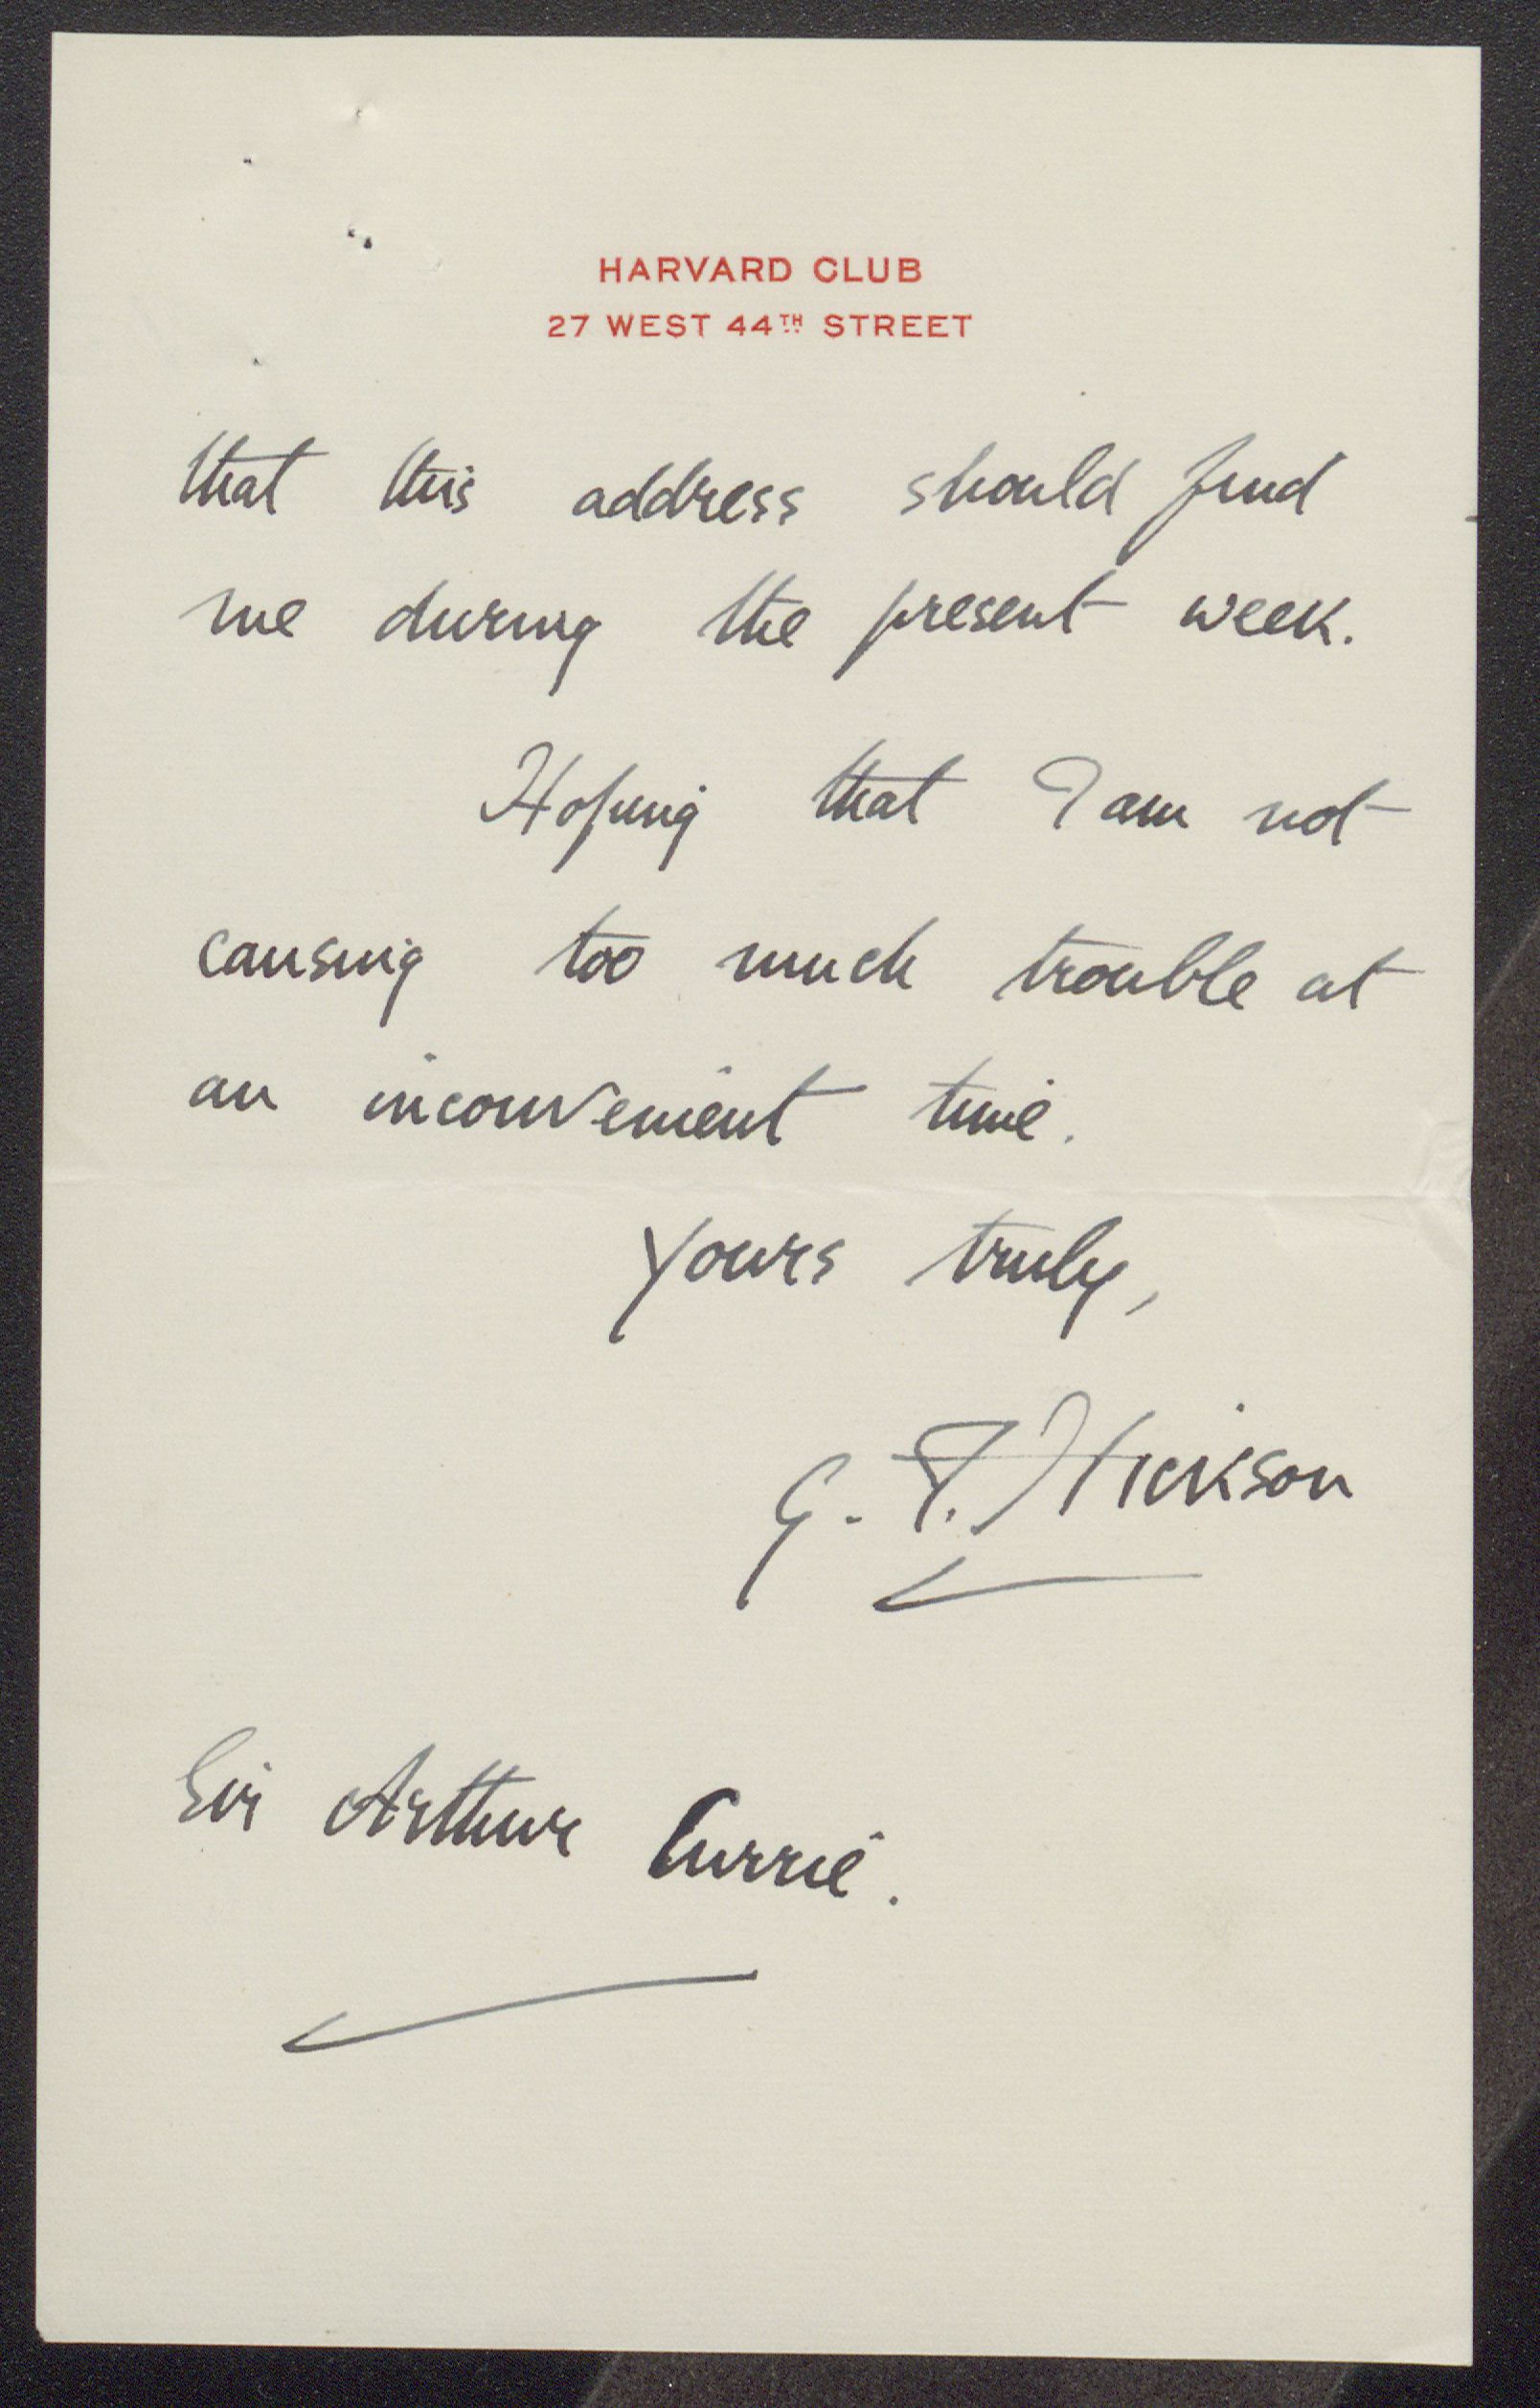 HARVARD CLUB
27 WEST 44TH STREET
that this address should find
me during the present week.
Hoping that I am not
causing too much trouble at
an inconvenient time.
Yours truly,
G. F. Hickson
Sir Arthur Currie.